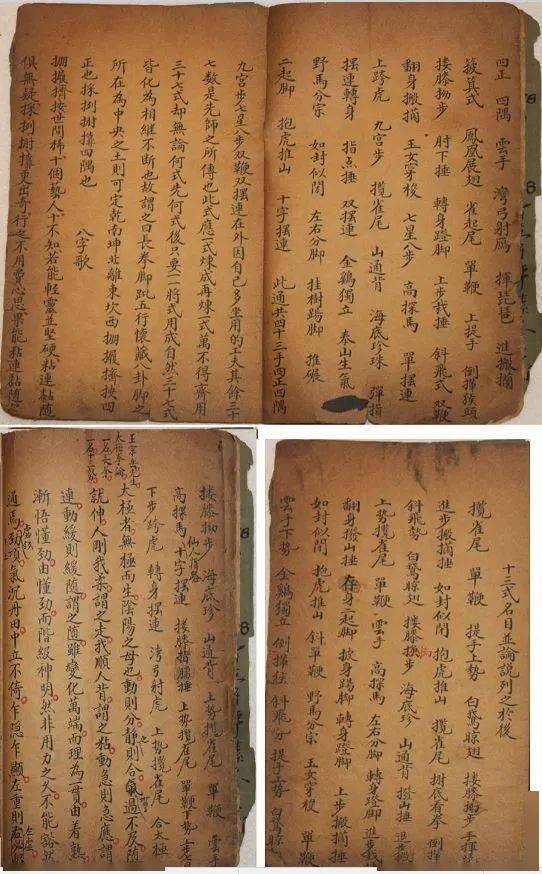 四正 四隅 雲手 灣弓射雁 揮琵琶 進搬攔
簸箕式 鳳凰展翅 雀起尾 單鞭 上提手 倒攆猴頭
摟膝拗步 肘下捶 轉身蹬脚 上步栽捶 斜飛式 雙鞭
翻身搬攔 玉女穿梭 七星八步 高探馬 單擺連
上跨虎 九宮步 攬雀尾 山通背 海底珍珠 彈指
擺連轉身 指点捶 双擺連 金鷄獨立 泰山生氣
野馬分宗 如封似閉 左右分脚 掛樹踢脚 推碾
二起脚 抱虎推山 十字擺連 此通共四十三手四正四隅
九宮步七星八步双鞭双擺連在外因自己多坐用的工夫其餘三十
七数是先師之所傳也此式應一式煉成再煉一式萬不得齊用
三十七式却無論何式先何式後只要一一將式用成自然三十七式
皆化為相継不斷也故謂之曰長拳脚跐五行懷藏八卦脚之
所在為中央之土則可定乾南坤北離東坎西掤攦擠按四
正也採挒肘攠四隅也
八字歌
掤攦擠按世間稀十個藝人十不知若能輕靈並堅硬粘連黏随
俱無疑採挒肘攠更出奇行之不用費心思果能粘連黏随
十三式名目並論說列之於後
攬雀尾 單鞭 提手上勢 白鵞晾翅 摟膝拗步 手揮琵
進步搬攔捶 如封似閉 抱虎推山 攬雀尾 肘底看拳 倒攆
斜飛勢 白鵞晾翅 摟膝拗步 海底珍 山通背 撇山捶 進步搬
上勢攬雀尾 單鞭 雲手 高探馬 左右分脚 轉身蹬脚 進步栽
翻身撇山捶 二起脚 披身踢脚 轉身蹬脚 上步搬攔捶
如封似閉 抱虎推山 斜單鞭 野馬分宗 玉女穿梭 單鞭
雲手下勢 金鷄獨立 倒攆猴 斜飛勢 提手上勢 白鵞晾
摟膝拗步 海底珍 山通背 上勢攬雀尾 單鞭 雲手
高探馬 十字擺連 摟膝指膽捶 上勢攬雀尾 單鞭下勢 上步七星
仙人指路
下步跨虎 轉身擺連 灣弓射虎 上勢攬雀尾 合太極
王宗岳先生
太極拳論
太極者無極而生陰陽之母也動則分静則合無過不及随
就伸人剛我柔謂之走我順人背謂之粘動急則急應動
連動緩則緩随謂之随雖變化萬端而理為一貫由着熟
漸悟懂勁由懂勁而階級神明然非用力之久不能豁然
通焉 勁項氣沉丹田中立不倚乍隱乍顯左重則左虛